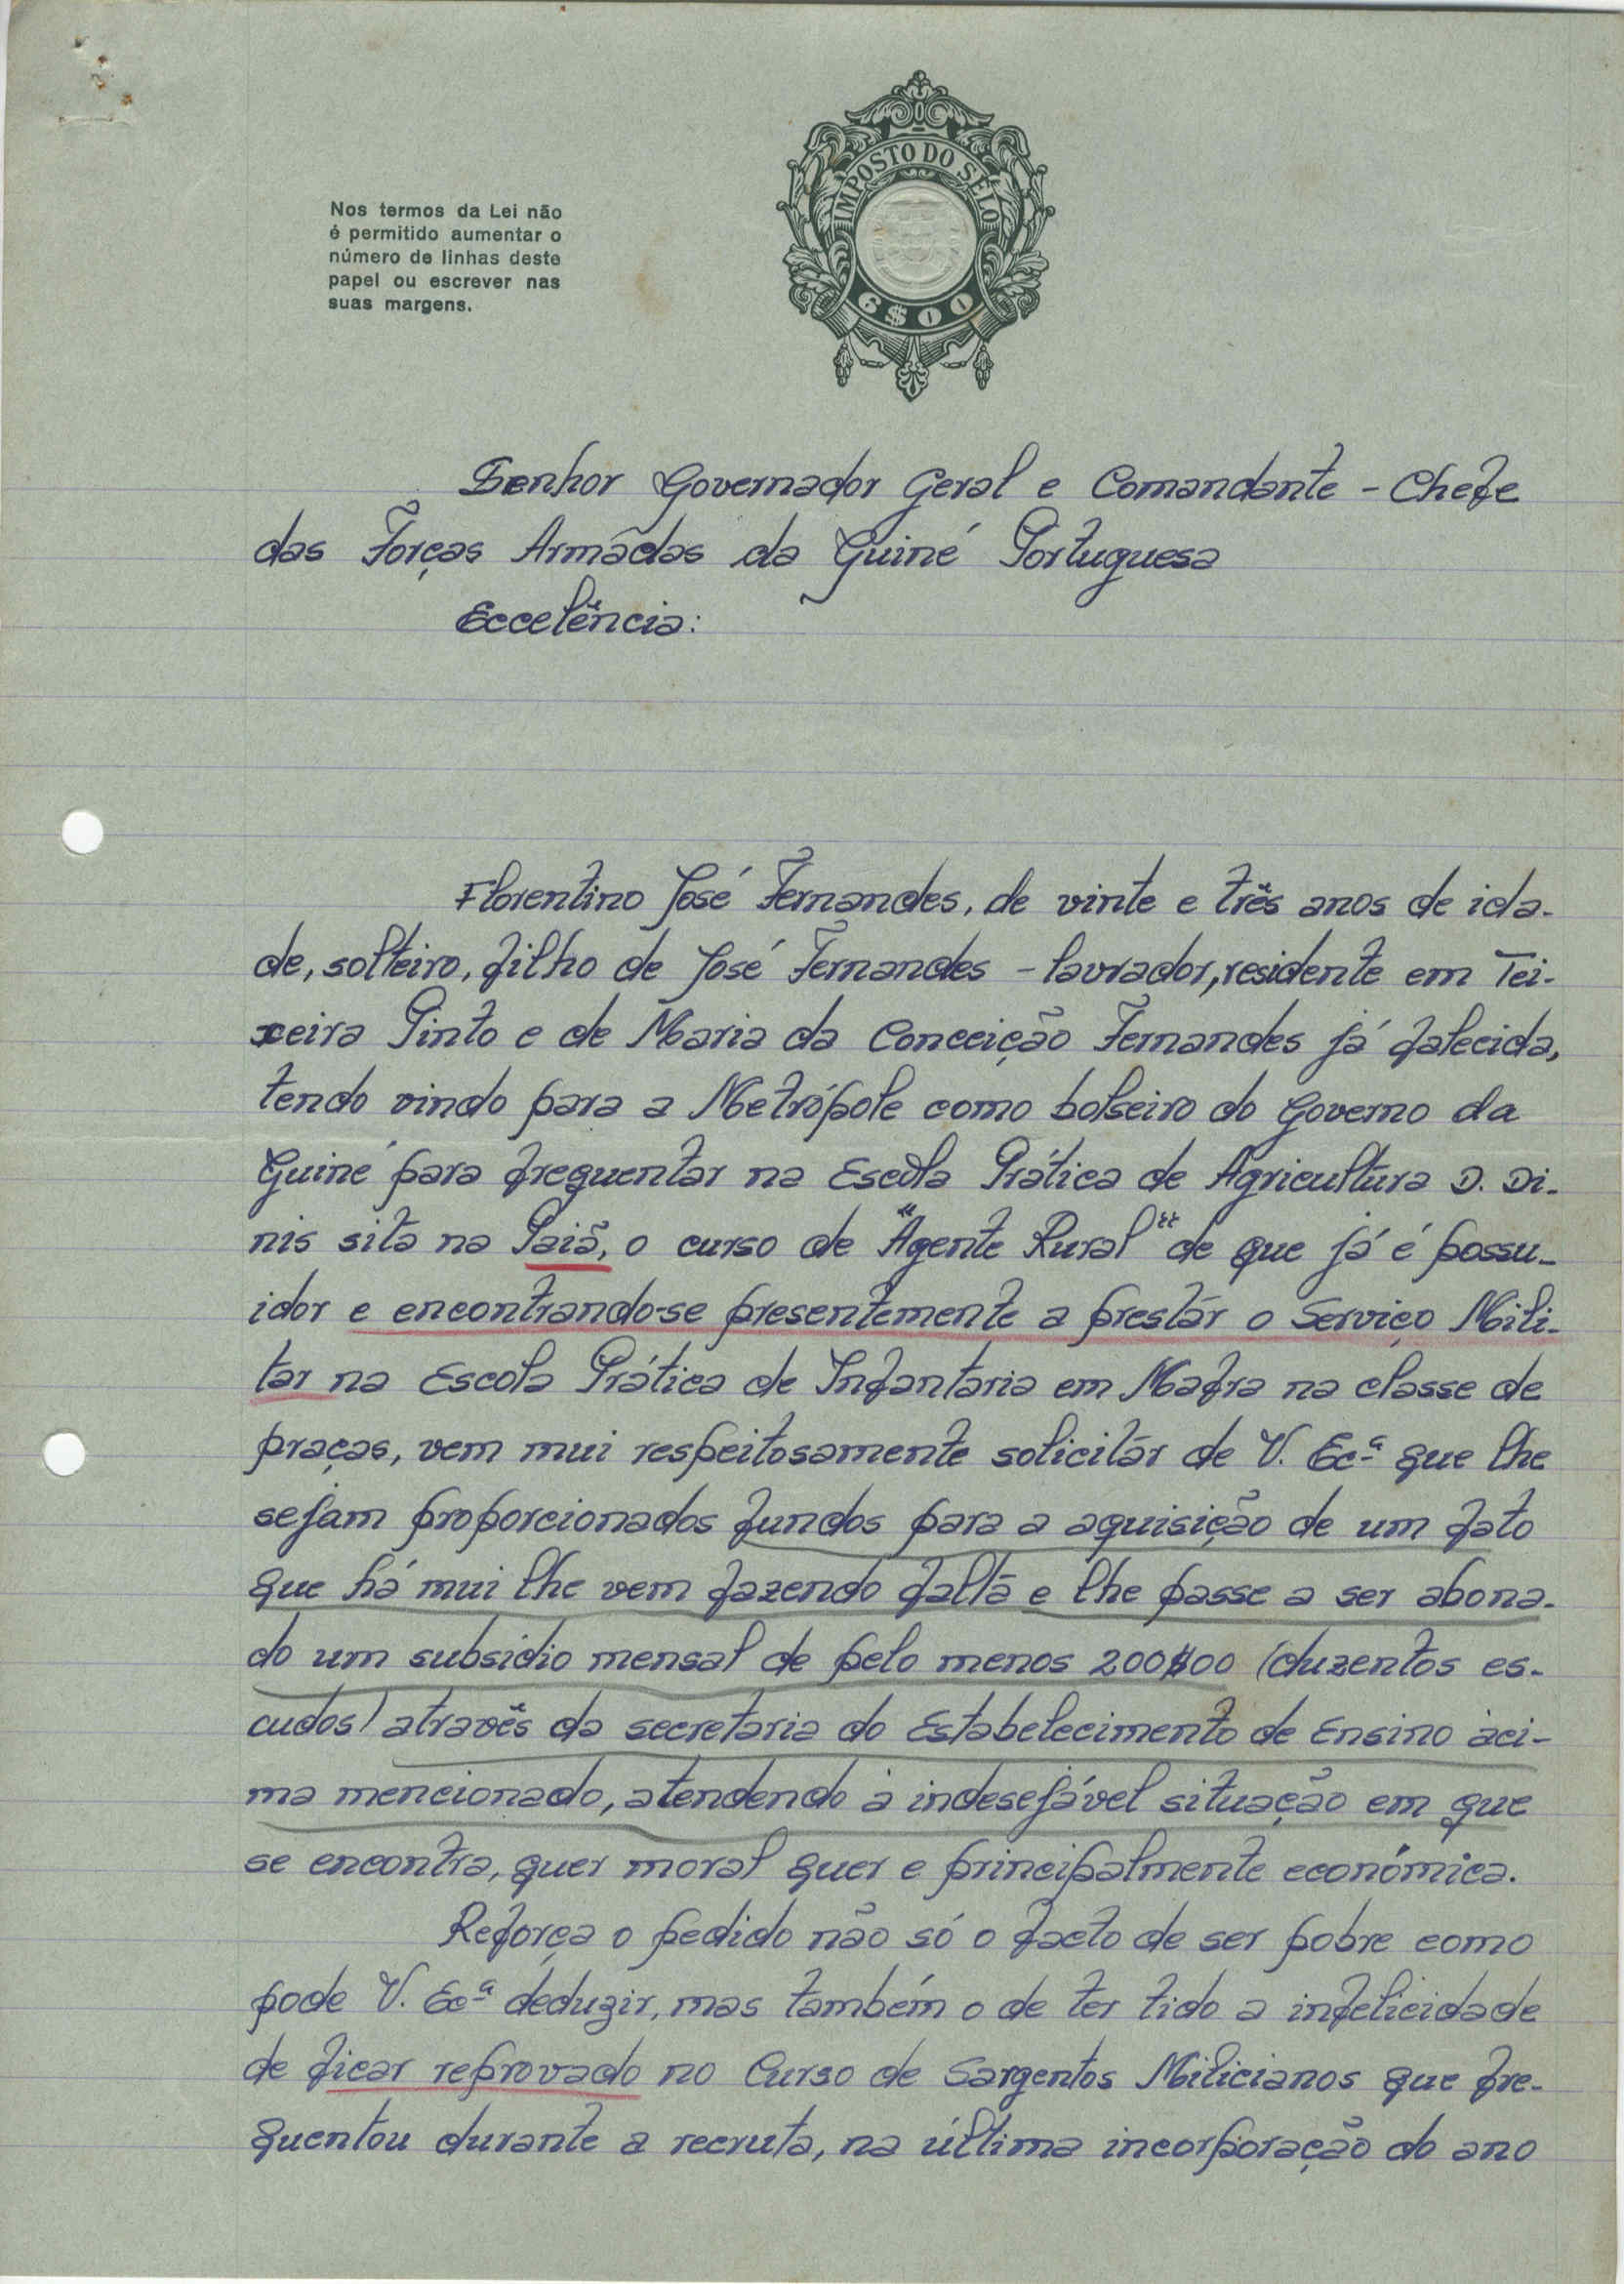 Nos termos da Lei não
é permitido aumentar o
número de linhas deste
papel ou escrever nas
suas margens.
IMPOSTO DO SELO
6$00
Senhor Governador Geral e Comandante - Chefe
das Forças Armadas da Guiné Portuguesa
Excelência:
Florentino José Fernandes, de vinte e três anos de ida-
de, solteiro, filho de José Fernandes - lavrador, residente em Tei-
xeira Pinto e de Maria da Conceição Fernandes já falecida,
tendo vindo para a Metrópole como bolseiro do Governo da
Guiné para frequentar na Escola Prática de Agricultura D. Di-
nis sita na Paiã, o curso de "Agente Rural" de que já é possu-
idor e encontrando-se presentemente a prestár o Serviço Mili-
tar na Escola Prática de Infantaria em Mafra na classe de
praças, vem mui respeitosamente solicitár de V. Exª que lhe
sejam proporcionados fundos para a aquisição de um fato
que há mui lhe vem fazendo falta e lhe passe a ser abona-
do um subsidio mensal de pelo menos 200$00 (duzentos es-
cudos) através da secretaria do Estabelecimento de Ensino àci-
ma mencionado, atendendo à indesejável situação em que
se encontra, quer moral quer e principalmente económica.
Reforça o pedido não só o facto de ser pobre como
pode V. Exª deduzir, mas também o de ter tido a infelicidade
de ficar reprovado no Curso de Sargentos Milicianos que fre-
quentou durante a recruta, na última incorporação do ano